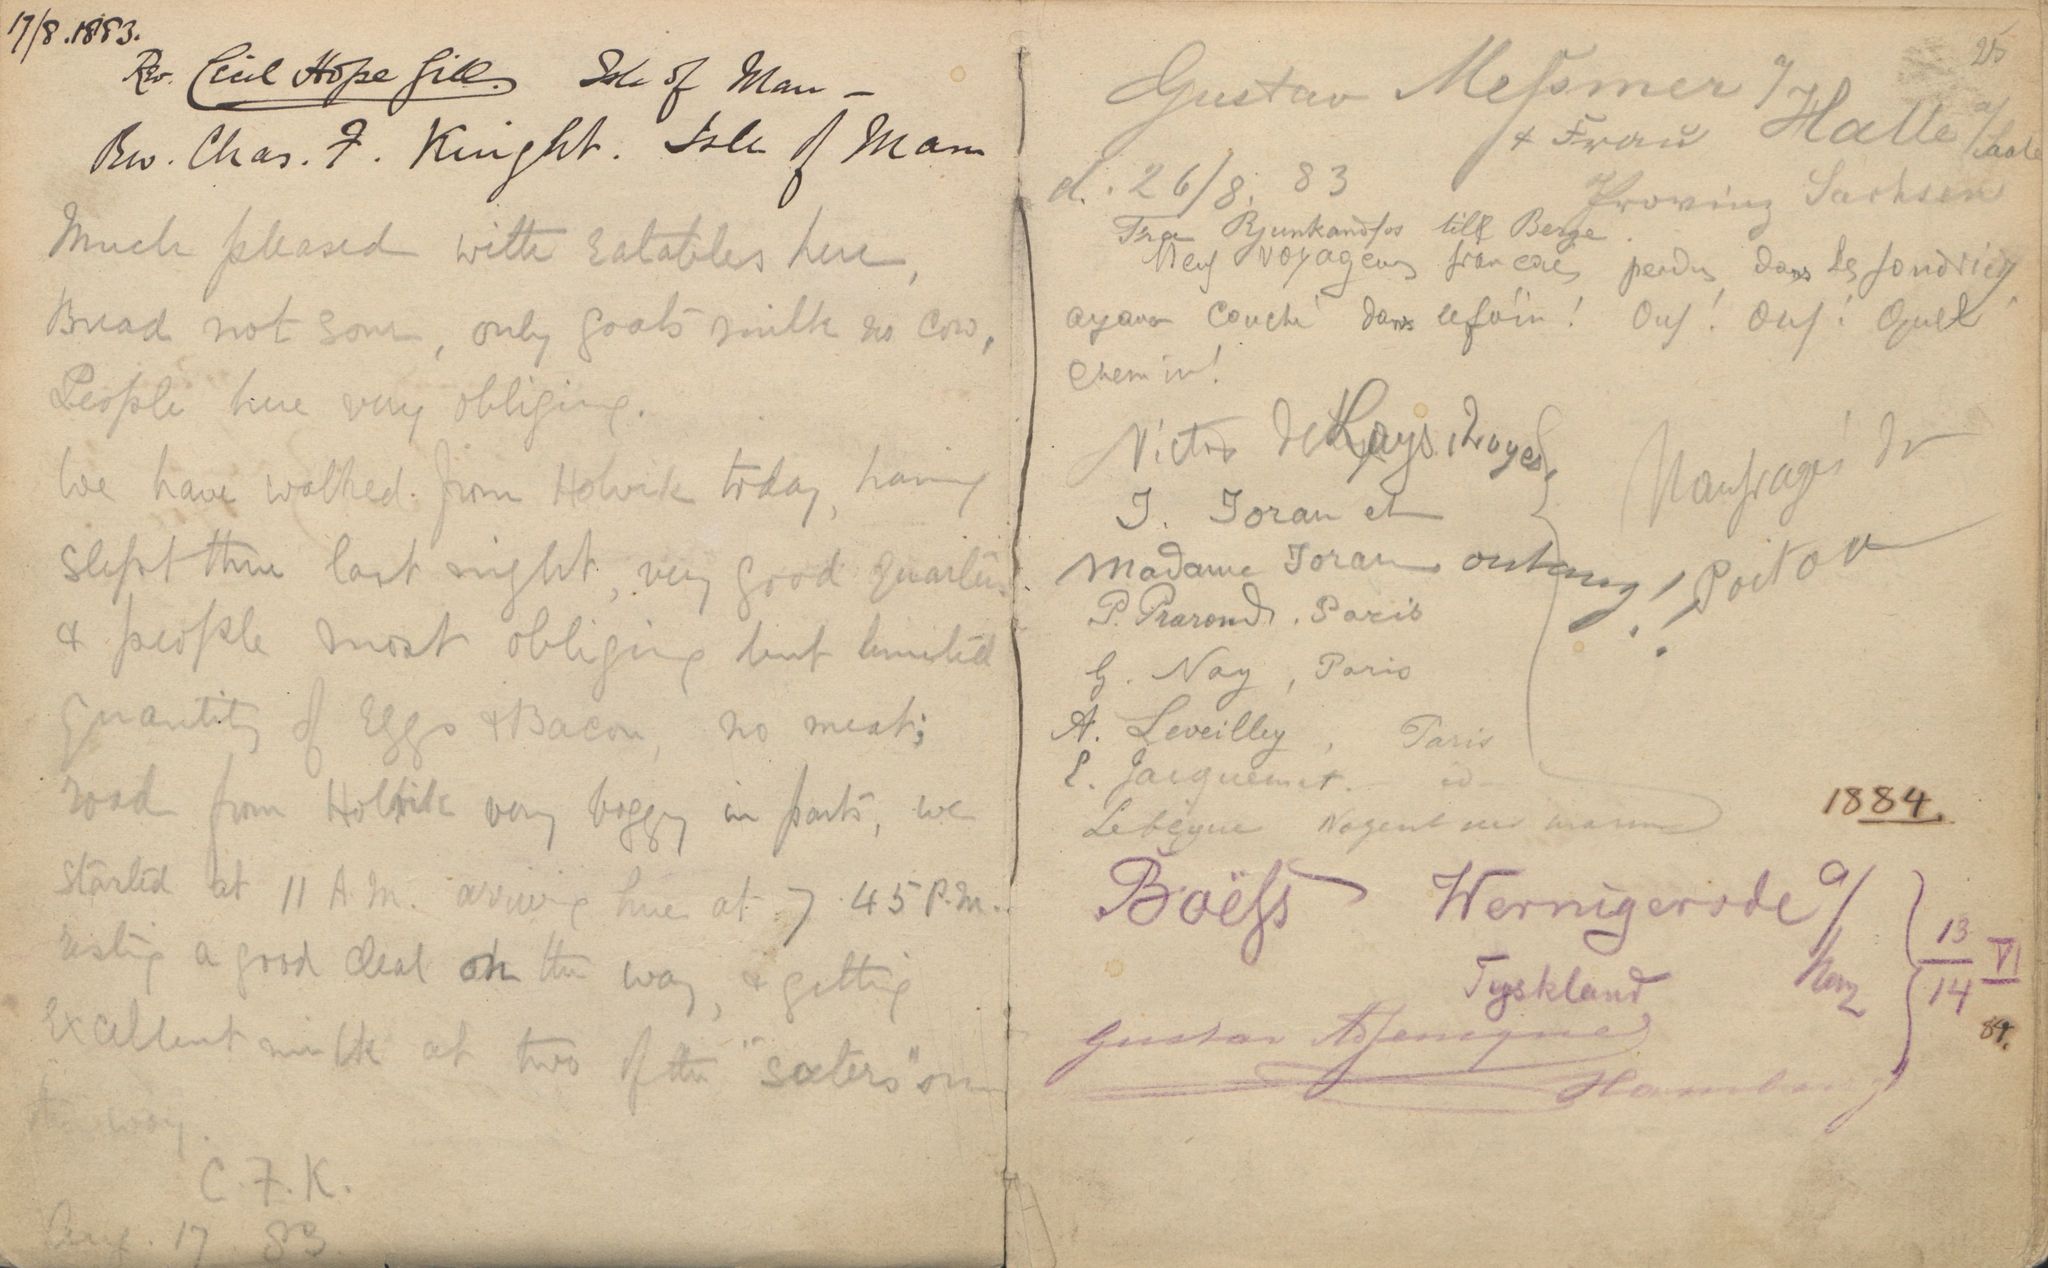 17/8.1883.
Rev. Cecil Hope Gill. Isle of Man –
Rev. Chas. F. Knight. Isle of Man
Much pleased with Eatables here,
Bread not sour, only goats milk no cow,
People here very obliging.
We have walked from Holvik today, having
slept there last night, very good quarters
& people most obliging but limited
quantity of Eggs & Bacon, no meat;
road from Holvik very boggy in parts, we
started at 11 A.M. arriving here at 7 45 P.M.
resting a good deal on the way, & getting
excellent milk at two of the "sæters" on
the way.
C.F.K.
Aug. 17 83
25
Gustav Meßmer a/
& Frau Halle a/Saale
d. 26/8. 83 Provinz Sachsen
Fra Rjunkandfos till Berge.
Neuf voyageurs français perdus dans les fondrières
ayant couché dans le foin! Ouf! Ouf! Quel
chemin!
Victor de
J. Joran et Naufragés du
Madame Joran Poitou
P. Prarond. Paris
G. Nay, Paris
A. Leveilley, Paris
E. Jacquemet. id
Lebègue Nogent sur marne
1884.
Boëß Wernigerode a/
Harz
Tyskland
13/14 VI
84.
Gustav
Hamburg